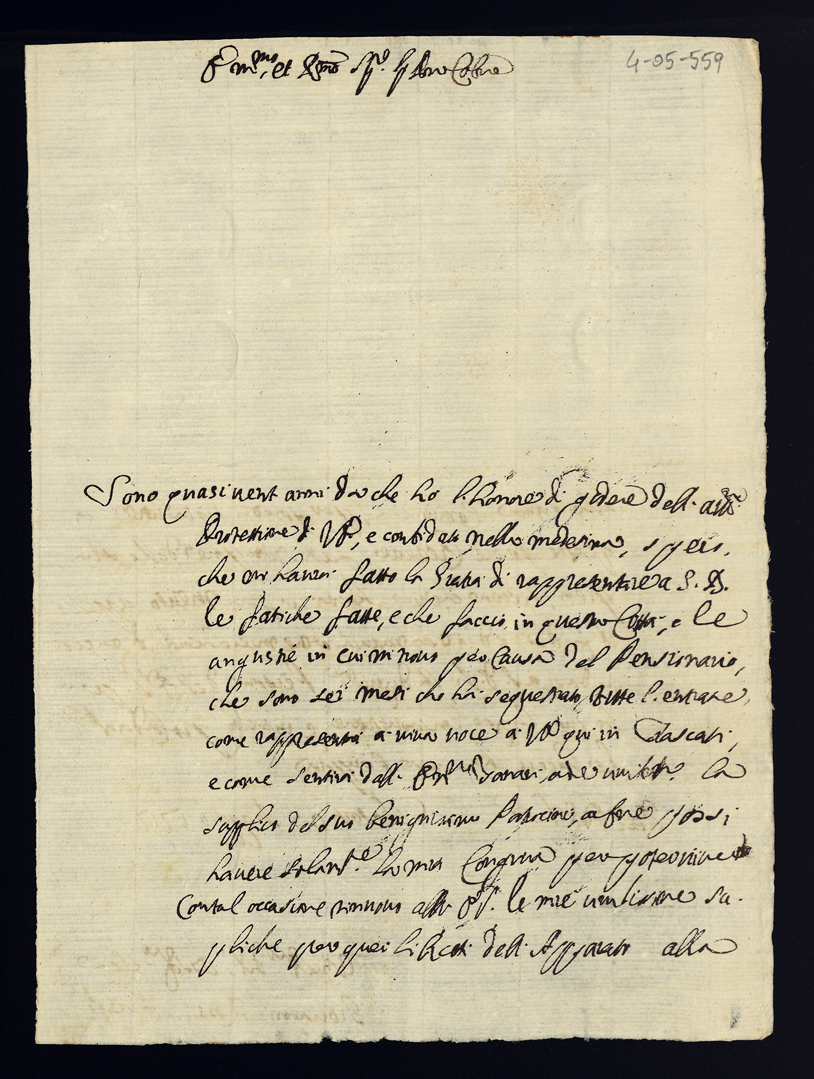 Em.mo, et R.mo Sig.r
4-05-559
Sono quasi vent anni da che ho l'honore di godere dell'
Protettione di V.E., e confidato nella medesima, spero,
che mi haverà fatto la Gratia di rappresentare a S. S.
le fatiche fatte, e che faccio, in questa Città, e le
angustie in cui mi trovo per Causa del Pensionario,
che sono sei mesi che ha sequestrato tutte l'entrate,
come rappresentai a viva voce a V.E. qui in Frascati,
e come sentirà dall' Em.mo la
supplico del suo benignissimo Patrocinio, a fine possi
havere la mia Congrua per poter vivere
Con tal occasione rinnovo all' E.V. le mie umilissime su-
pliche per quei dell' Apparato alla